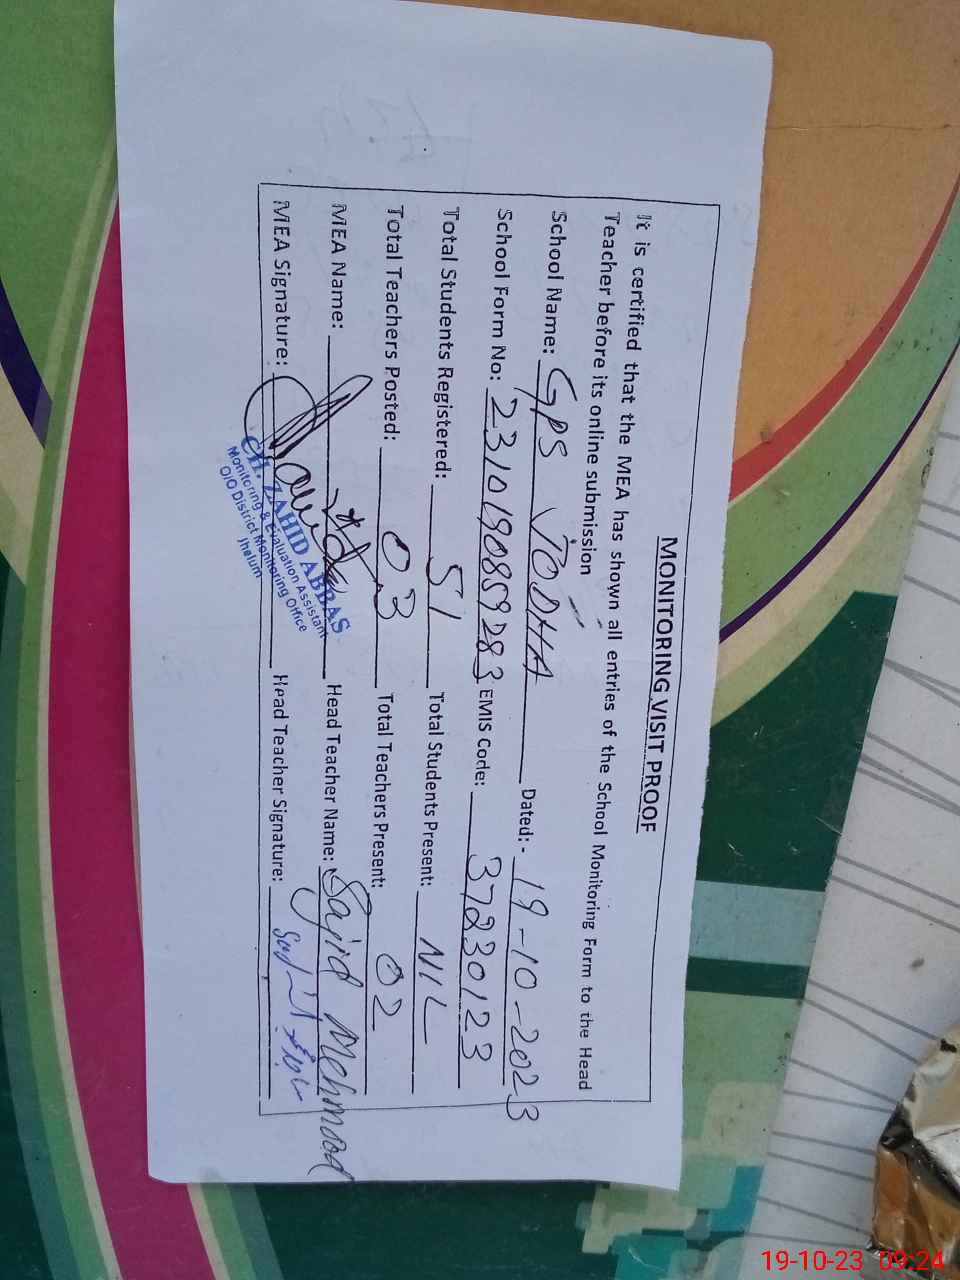 MONITORING VISIT PROOF
It is certified that the MEA has shown all entries of the School Monitoring Form to the Head
Teacher before its online submission
School Name: GPS JODHA Dated:- 19-10-2023
School Form No: 2310190859283 EMIS Code: 37230123
Total Students Registered: 51 Total Students Present: NIL
Total Teachers Posted: 03 Total Teachers Present: 02
MEA Name: Head Teacher Name: Sajid Mehmood
MEA Signature: Head Teacher Signature:
CH. ZAHID ABBAS
Monitoring & Evaluation Assistant
O/O District Monitoring Office
Jhelum
19-10-23 09:24